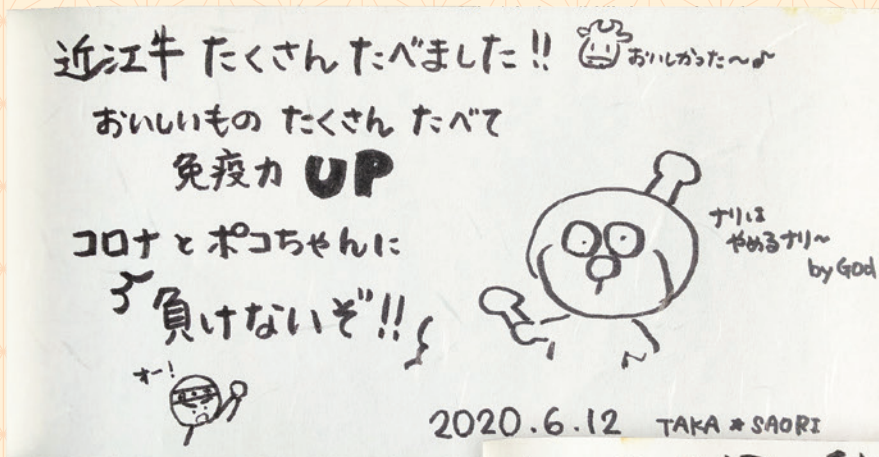 近江牛 たくさん たべました!!
おいしかった〜♪
おいしいもの たくさん たべて
免疫力 UP
コロナと ポコちゃんに
負けないぞ!!
オー!
ナリは
やめるナリ〜
by God
2020.6.12 TAKA★SAORI